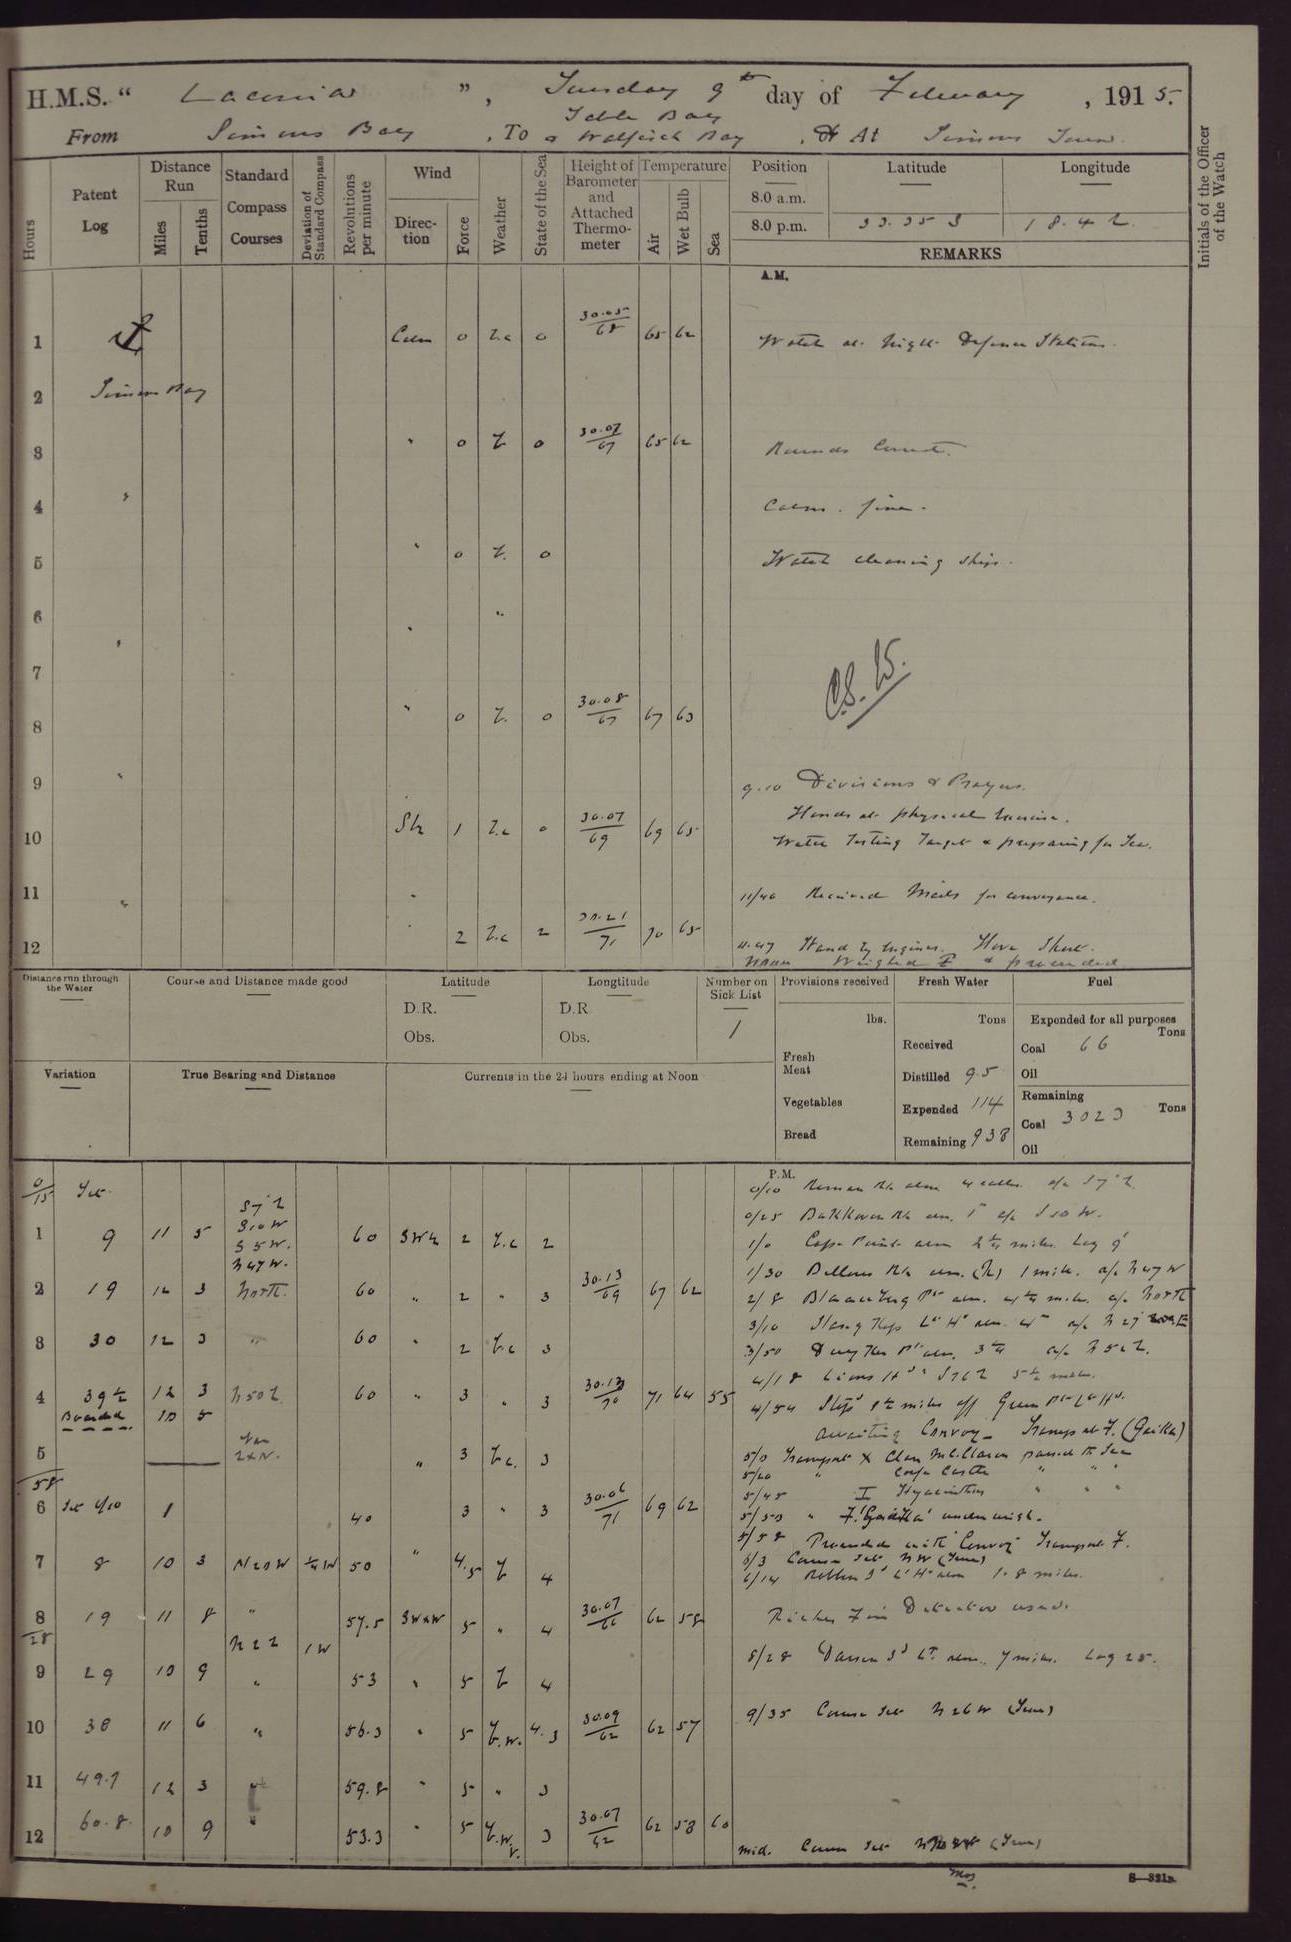 H.M.S. " Laconia ", Tuesday 9th day of February, 1915.
From Simons Bay, To Table Bay & Walfisch Bay, or At Simons Town.
Hours
Patent Log
Distance Run
Miles
Tenths
Standard Compass Courses
Deviation of Standard Compass
Revolutions per minute
Wind
Direction
Force
Weather
State of the Sea
Height of Barometer and Attached Thermometer
Temperature
Air
Wet Bulb
Sea
Position
Latitude
Longitude
8.0 a.m.
8.0 p.m. 33.35 S 18.4 E
REMARKS
Initials of the Officer of the Watch
A.M.
1 Calm 0 b.c 0 30.05/68 65 62 Watch at night Defence Stations.
2 Simons Bay
3 " 0 b 0 30.07/67 65 62 Rounds Correct.
4 " Calm. fine.
5 " 0 b. 0 Watch cleaning ship.
6 " "
7 "
C.S. 15.
8 " 0 b. 0 30.08/67 67 63
9 " 9.10 Divisions & Prayers.
Hands at physical Exercise.
10 1 b.c 0 30.07/69 69 65 Water Testing Target & preparing for Sea.
11 " " 11/40 Received Mails for conveyance.
12 " 2 b.c 2 30.21/71 70 65 11.47 Stand by Engines. Hove Short.
Noon Weighed & proceeded
Distance run through the Water
Course and Distance made good
Latitude
D.R.
Obs.
Longtitude
D.R
Obs.
Number on Sick List
1
Provisions received
lbs.
Fresh Meat
Vegetables
Bread
Fresh Water
Tons
Received
Distilled 95
Expended 114
Remaining 938
Fuel
Expended for all purposes
Tons
Coal 66
Oil
Remaining
Coal 3023 Tons
Oil
Variation
True Bearing and Distance
Currents in the 24 hours ending at Noon
P.M.
0/15 Set 0/10 Roman Rk abm a/c S 7 E
S 7 E
S 10 W 0/25 abm. 1' a/c S 10 W.
1 9 11 5 S 5 W. 60 SW 2 b.c 2 1/0 Cape Point abm 2 1/4 miles Log 9'
N 47 W. 1/30 Bellows Rk abm. 1 mile. a/c N 47 W
2 19 12 3 North. 60 " 2 " 3 30.13/69 67 62 2/8 abm. 4 1/4 miles. a/c North
3/10 Slang Kop Lt Ho abm. a/c N 27 E
3 30 12 3 " 60 " 2 b.c 3 3/50 Duyker Pt abm. 3 1/4 a/c N 50 E.
4/18 Lions Hd S 76 E 5 1/2 miles.
4 39 1/2 12 3 N 50 E 60 " 3 " 3 30.13/70 71 64 55 4/54 Stopd 1 1/2 miles off Green Pt Lt Ho.
Boarded 10 5 awaiting Convoy - Transport F. (Gaika)
5 " 3 b.c. 3 5/0 Transport X Clan McClaren passed to Sea
5/20 " Corfe Castle " " "
58
5/45 I Hyacinthus " " "
6 Set 6/10 1 40 3 " 3 30.06/71 69 62 5/53 " F. 'Gaika' underweigh.
5/58 Proceeded with Convoy Transport F.
7 8 10 3 N 20 W 1/4 W 50 " 4.5 b 4 6/3 Course Set NW (True)
6/14 Robben Id Lt Ho abm 1.8 miles.
8 19 11 8 " 57.5 SWxW 5 " 4 30.07/62 62 58 Fire Detector used.
28 N 22 1 W 8/28 Dassen Id Lt. abm. 7 miles. Log 25.
9 29 10 9 " 53 " 5 b 4
10 38 11 6 " 56.3 " 5 b.w. 4.3 30.09/62 62 57 9/35 Course Set N 26 W (True)
11 49.7 12 3 " 59.8 " 5 " 3
12 60.8 10 9 " 53.3 " 5 b.w.v. 3 30.07/62 62 58 60 mid. Course Set (True)
S—321a.